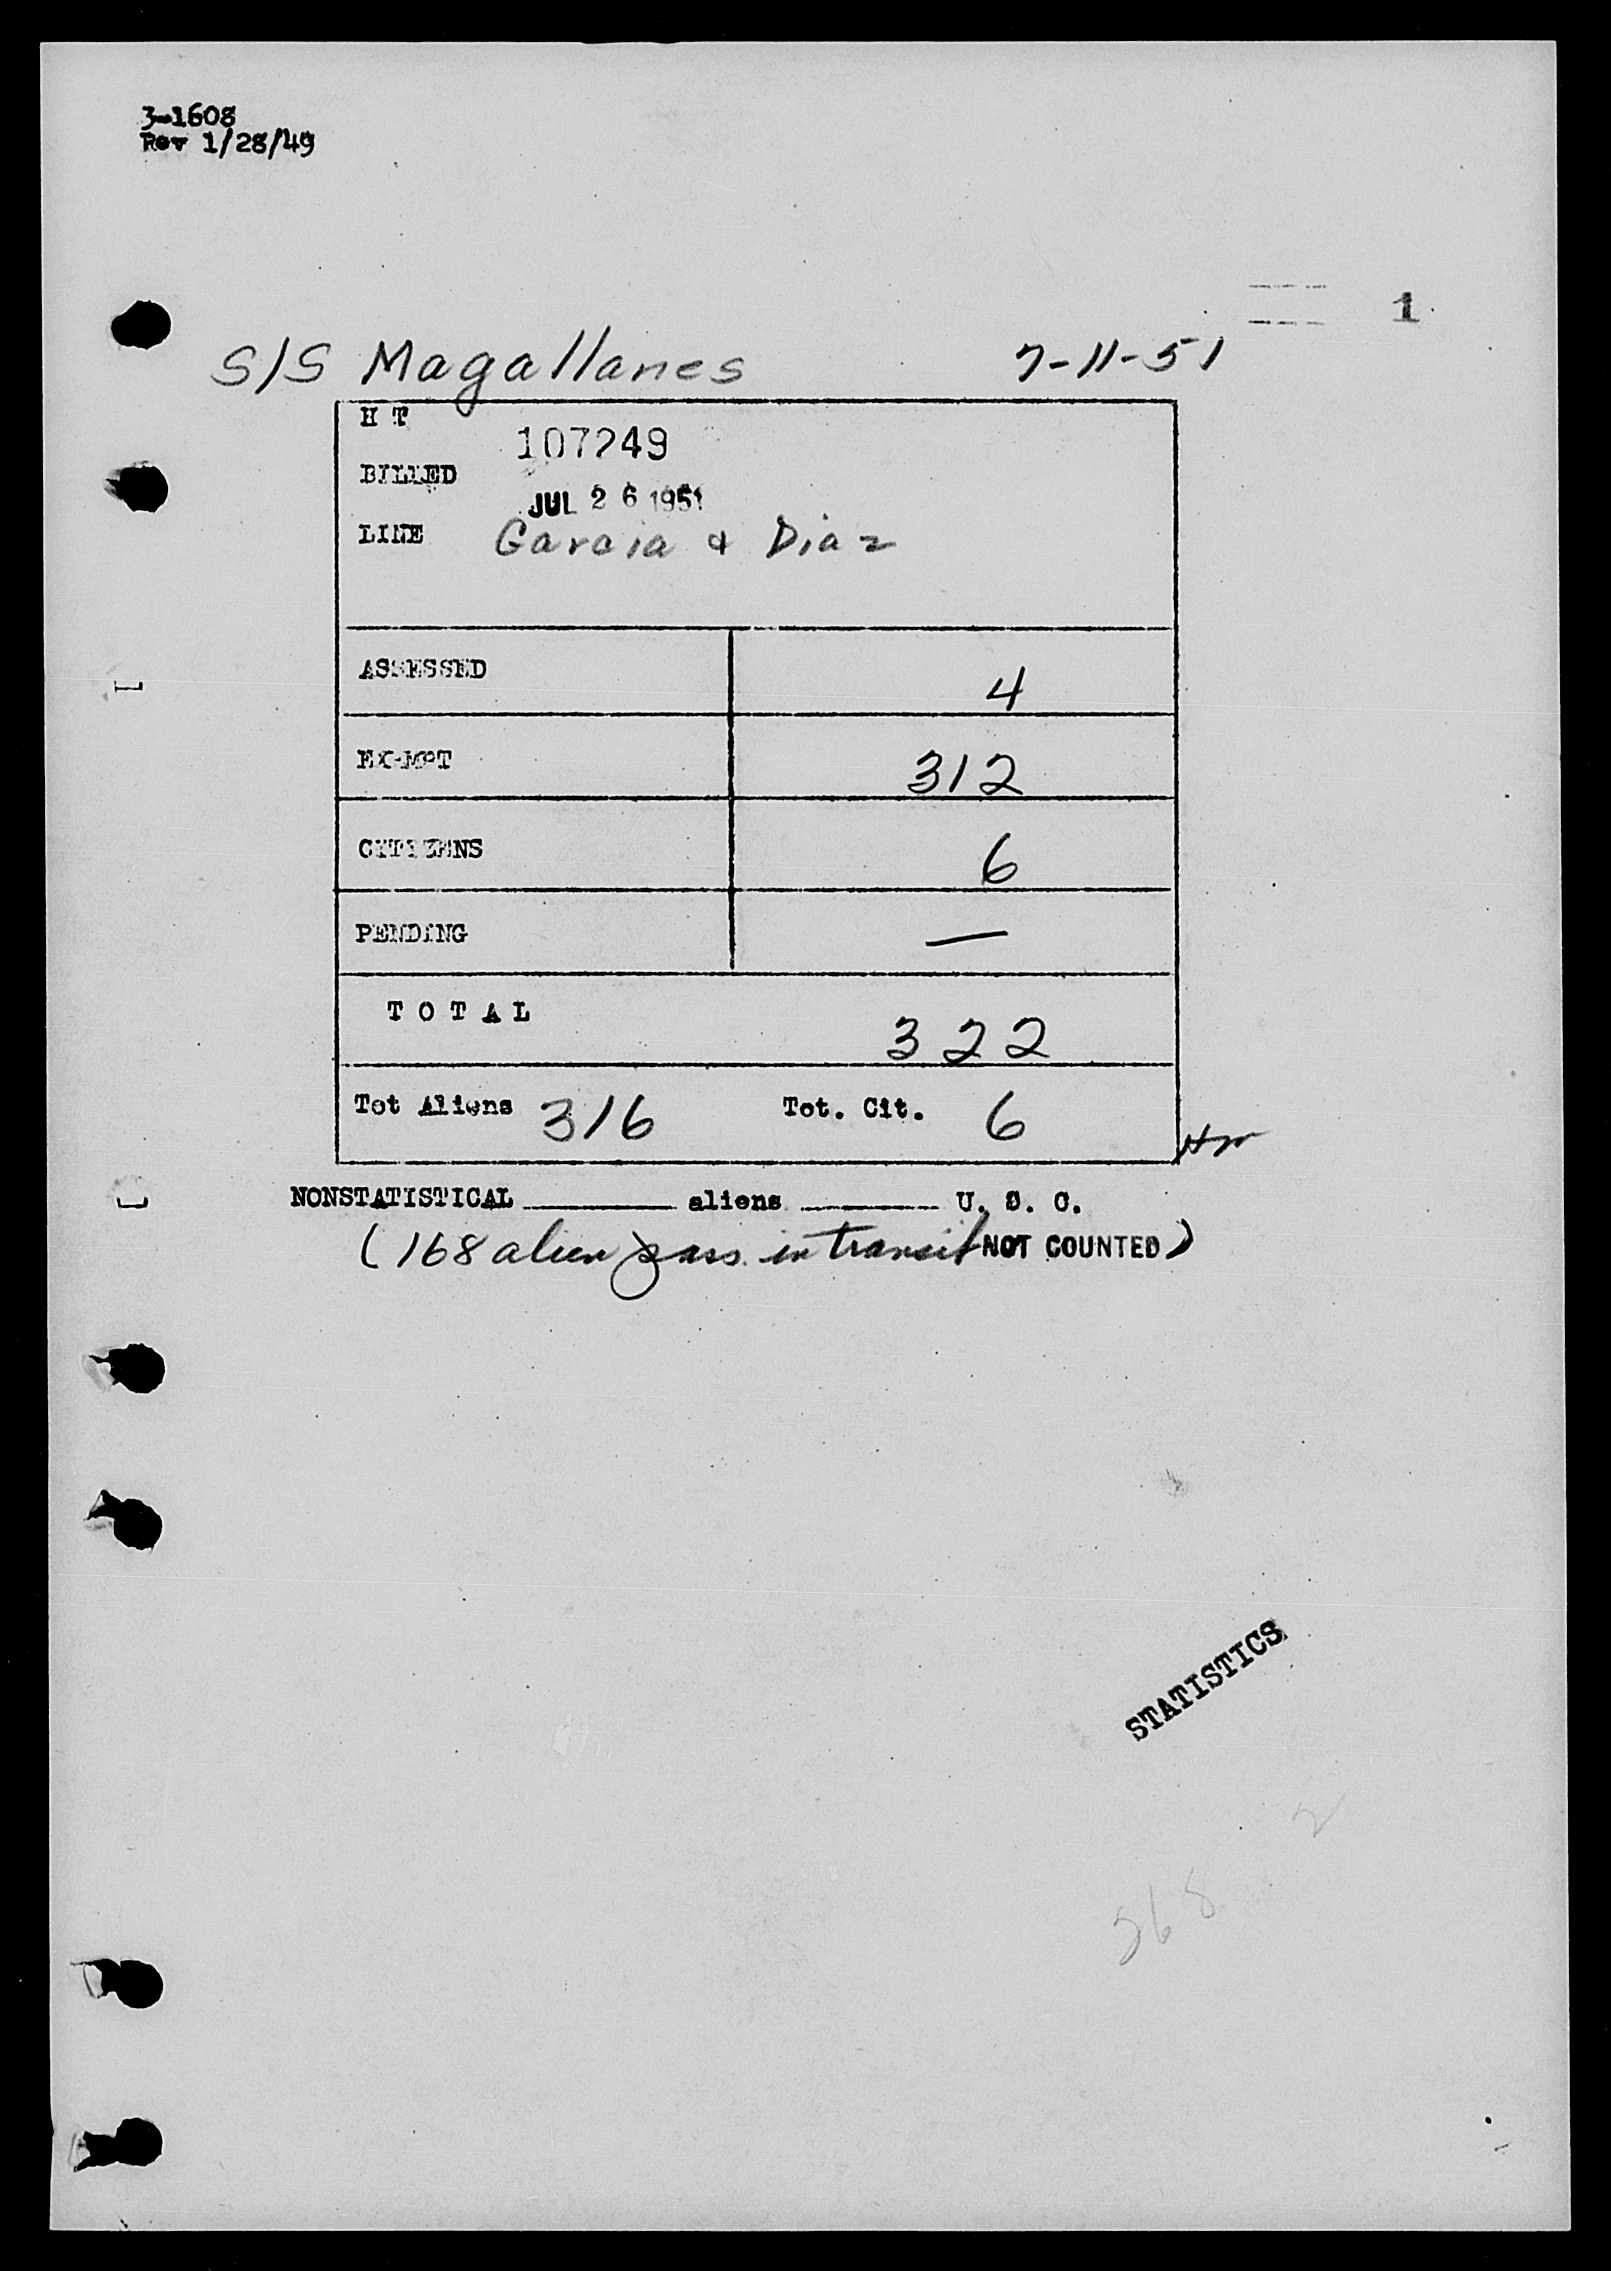 3-1608
Rev 1/28/49
1
S/S Magallanes 7-11-51
H T
107249
BILLED
JUL 26 1951
LINE Garcia & Diaz
ASSESSED 4
EXEMPT 312
CITIZENS 6
PENDING —
TOTAL 322
Tot Aliens 316 Tot. Cit. 6
NONSTATISTICAL ______ aliens ______ U. S. C.
(168 alien pass. in transit NOT COUNTED)
STATISTICS
2
368